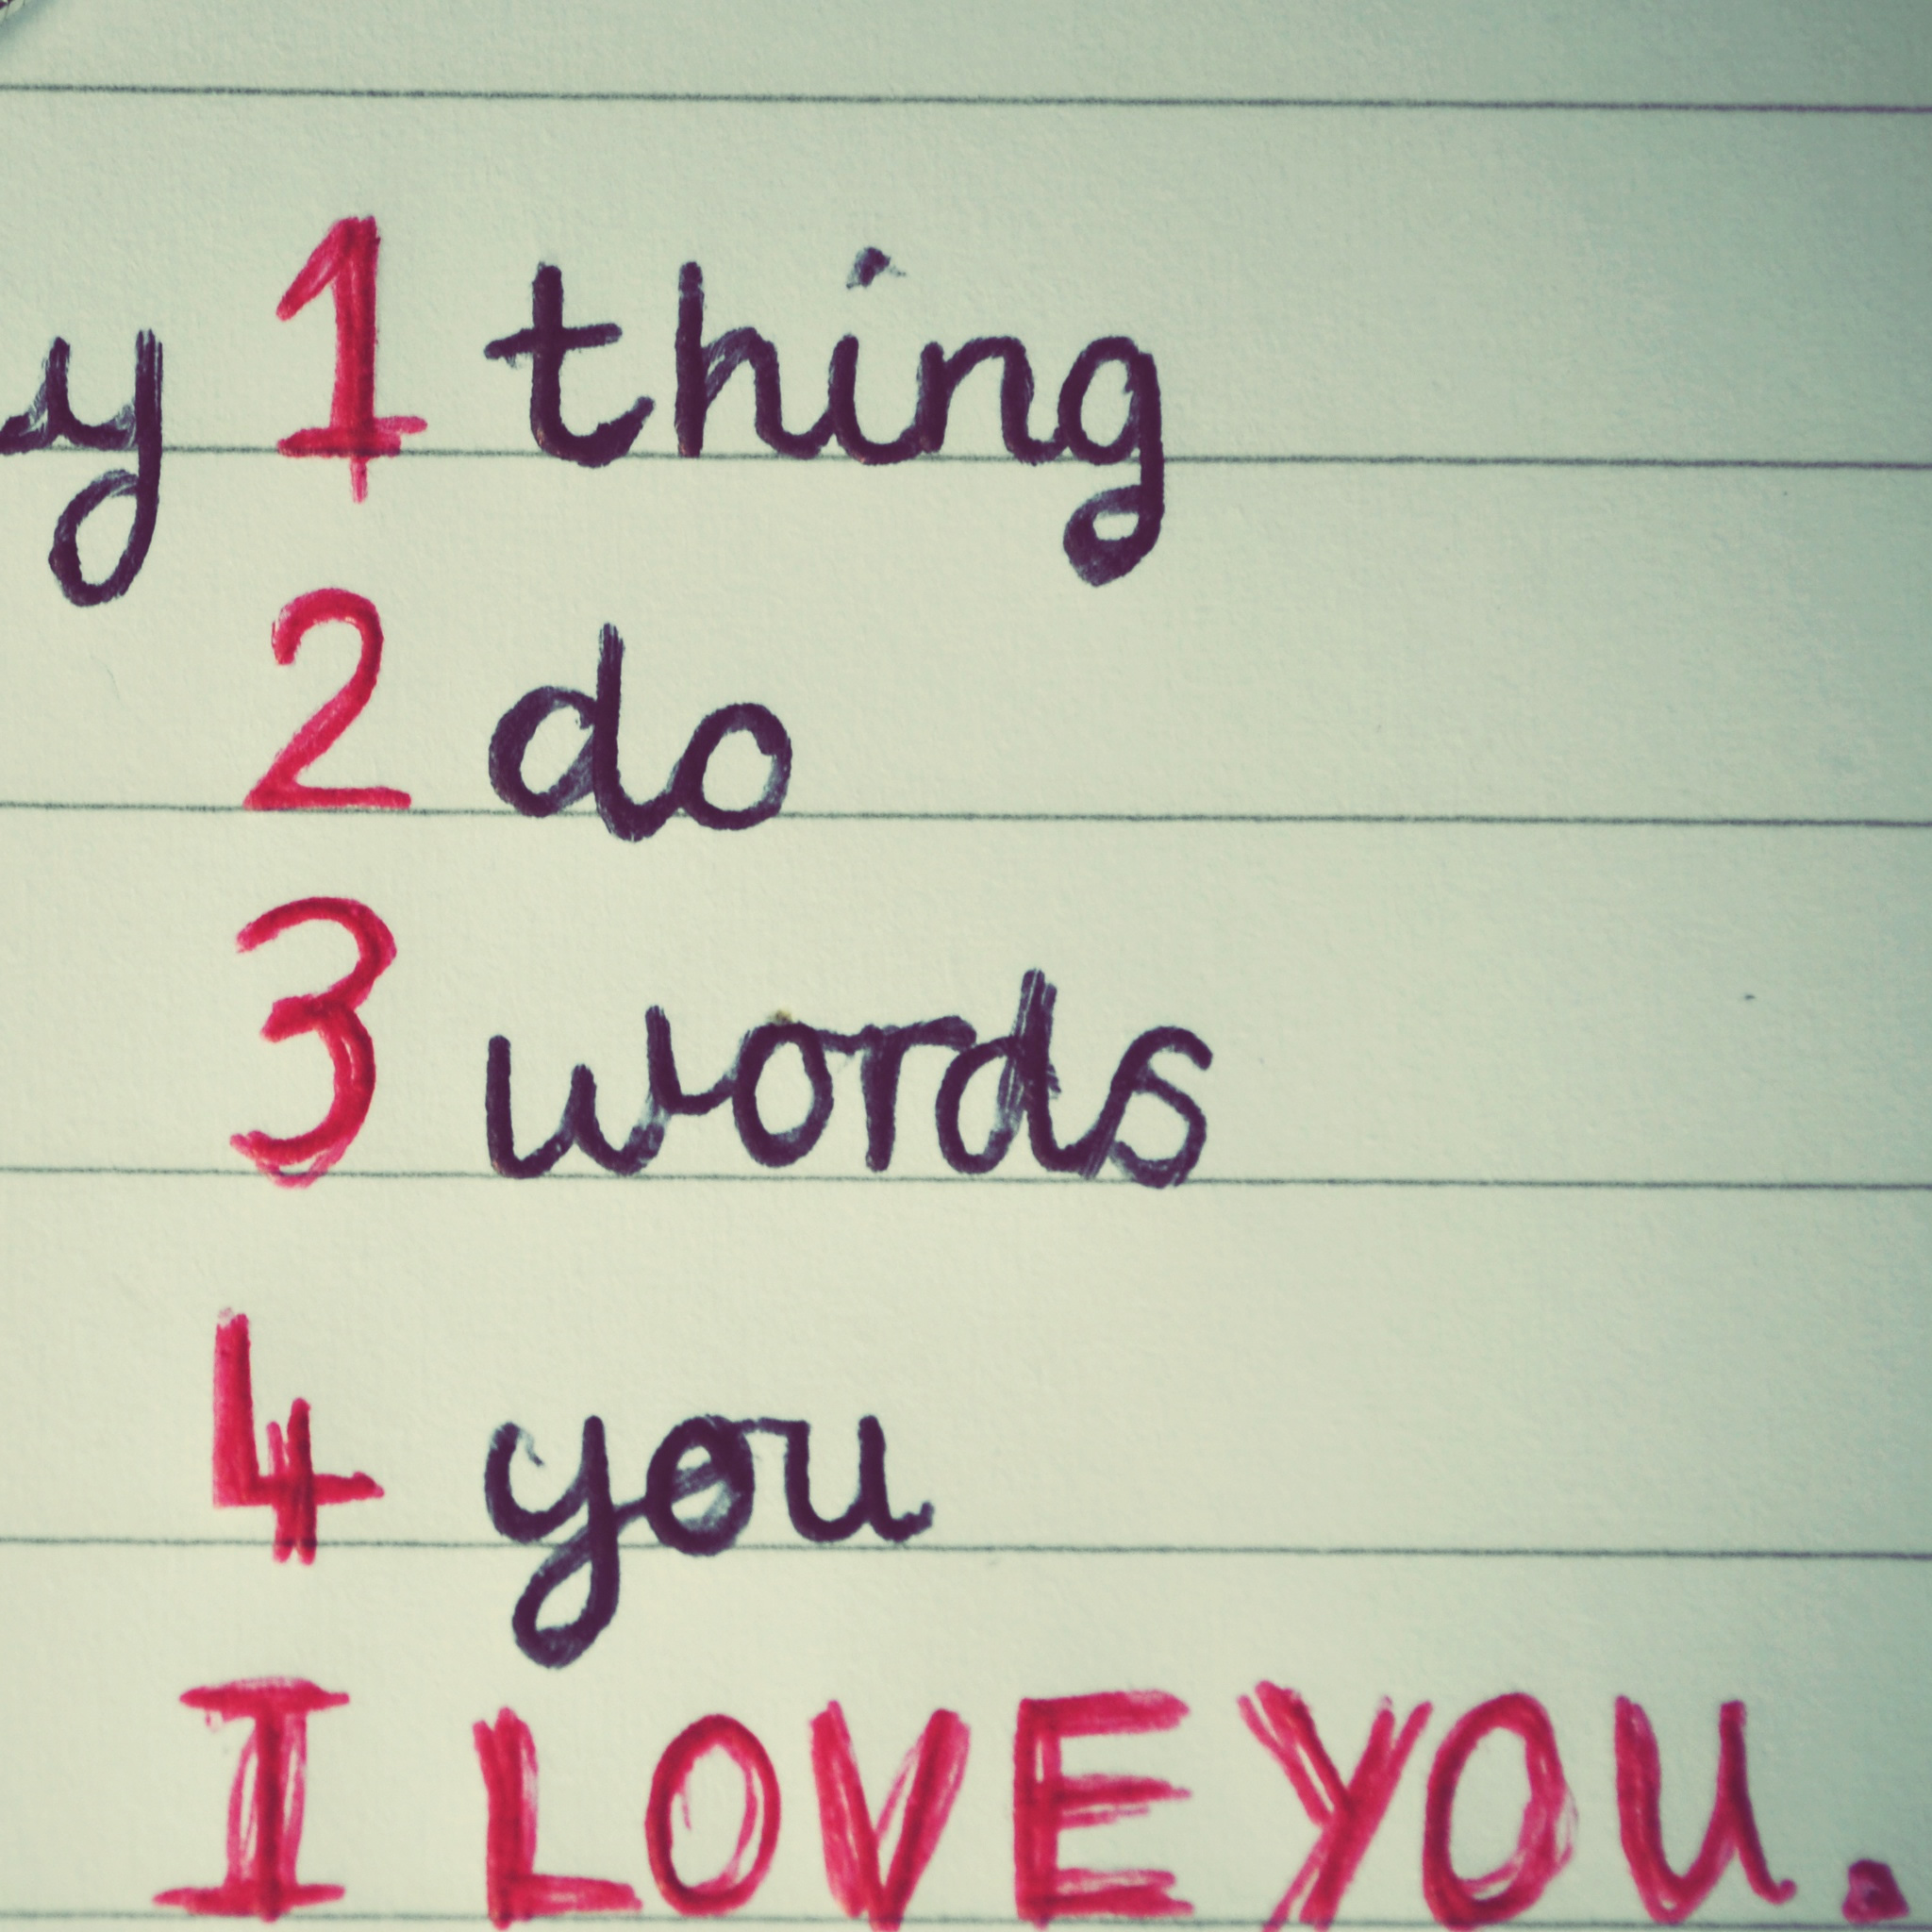 1 thing
2 do
3 words
4 you
I LOVE YOU.